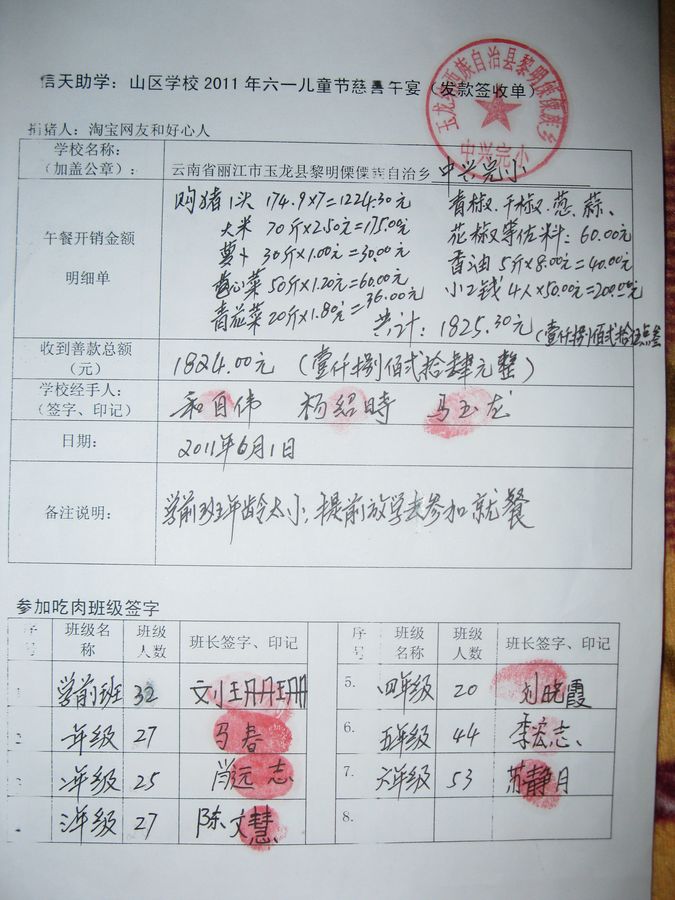 信天助学：山区学校 2011 年六一儿童节慈善午宴（发款签收单）
玉龙纳西族自治县黎明傈僳族乡
中兴完小
捐猪人：淘宝网友和好心人
学校名称：
（加盖公章）：
云南省丽江市玉龙县黎明傈僳族自治乡 中兴完小
午餐开销金额
明细单
购猪1头 174.9×7=1224.30元
大米 70斤×2.50元=175.00元
萝卜 30斤×1.00元=30.00元
卷心菜 50斤×1.20元=60.00元
青花菜 20斤×1.80元=36.00元
香椒、干椒、葱、蒜、
花椒等佐料：60.00元
香油 5斤×8.00元=40.00元
小工钱 4人×50.00元=200.00元
共计：1825.30元（壹仟捌佰贰拾伍点叁
收到善款总额
（元）
1824.00元（壹仟捌佰贰拾肆元整）
学校经手人：
（签字、印记）
和自伟 杨绍時 马玉龙
日期：
2011年6月1日
备注说明：
学前班年龄太小，提前放学去参加就餐
参加吃肉班级签字
序号 班级名称 班级人数 班长签字、印记
序号 班级名称 班级人数 班长签字、印记
学前班 32
5. 四年级 20 刘晓霞
一年级 27 马春
6. 五年级 44 李宏志
二年级 25 肖远志
7. 六年级 53 苏静月
三年级 27 陈文慧
8.